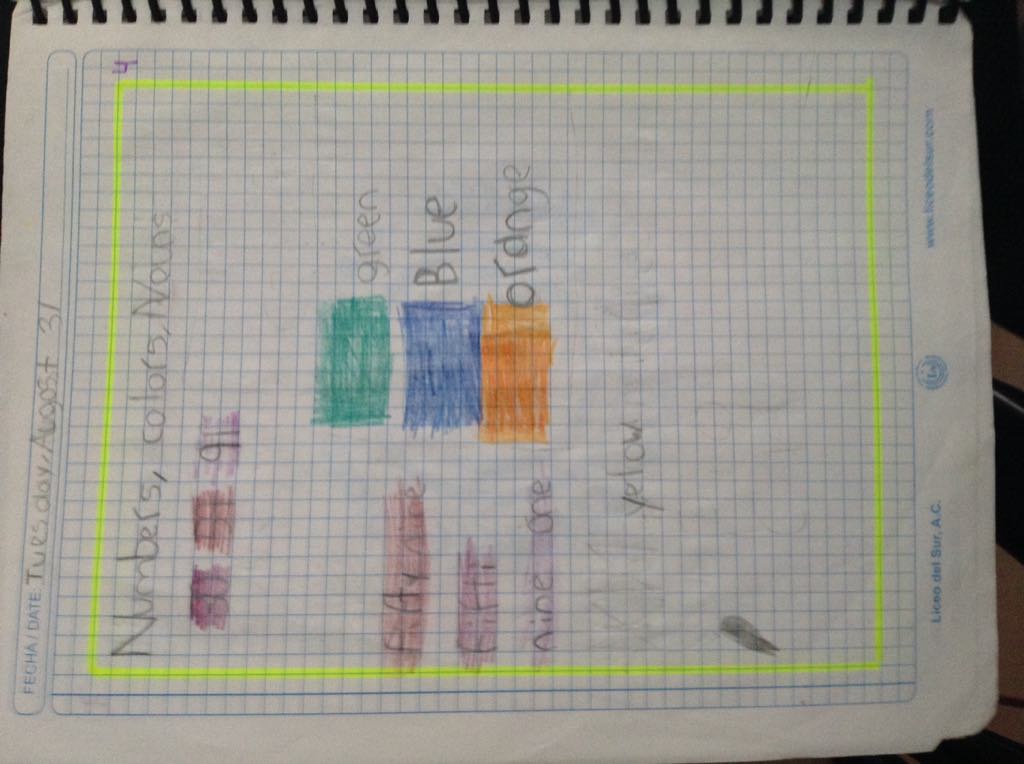 4
FECHA / DATE: Tuesday, Augost 31
Numbers, colors, Nouns
91
green
Blue
orange
fifty nine
fifti
nine one
yellow
Liceo del Sur, A.C.
www.liceodelsur.com